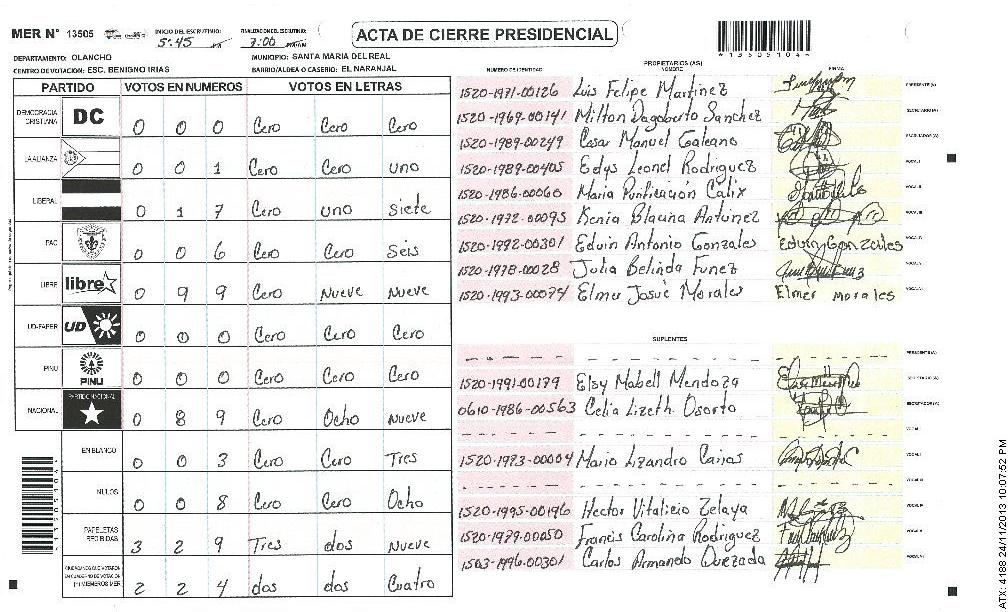 MER N° 13505 INICIO DEL ESCRUTINIO: 5:45 FINALIZACION DEL ESCRUTINIO: 7:00 PM/AM
ACTA DE CIERRE PRESIDENCIAL
4135051044
DEPARTAMENTO: OLANCHO MUNICIPIO: SANTA MARIA DEL REAL
CENTRO DE VOTACION: ESC. BENIGNO IRIAS BARRIO/ALDEA O CASERIO: EL NARANJAL
PARTIDO VOTOS EN NUMEROS VOTOS EN LETRAS
DEMOCRACIA CRISTIANA DC 0 0 0 Cero Cero Cero
LA ALIANZA 0 0 1 Cero Cero uno
LIBERAL 0 1 7 Cero uno Siete
PAC 0 0 6 Cero Cero Seis
LIBRE libre 0 9 9 Cero Nueve Nueve
UD-FAPER UD 0 0 0 Cero Cero Cero
PINU PINU 0 0 0 Cero Cero Cero
NACIONAL PARTIDO NACIONAL 0 8 9 Cero Ocho Nueve
EN BLANCO 0 0 3 Cero Cero Tres
NULOS 0 0 8 Cero Cero Ocho
PAPELETAS RECIBIDAS 3 2 9 Tres dos Nueve
CIUDADANOS QUE VOTARON EN CUADERNO DE VOTACION (+) MIEMBROS MER 2 2 4 dos dos Cuatro
NUMERO DE IDENTIDAD PROPIETARIOS (AS) NOMBRE FIRMA
1520-1971-00126 Luis Felipe Martinez PRESIDENTE (A)
1520-1969-00141 Milton Dagoberto Sanchez SECRETARIO (A)
1520-1989-00249 Cesar Manuel Galeano ESCRUTADOR (A)
1520-1989-00405 Edys Leonel Rodriguez VOCAL I
1520-1986-00060 Maria Purificación Calix VOCAL II
1520-1972-00095 Kenia Blauna Antunez VOCAL III
1520-1992-00301 Edwin Antonio Gonzales Edwin Gonzales VOCAL IV
1520-1978-00028 Julia Belinda Funez VOCAL V
1520-1993-00074 Elmer Josué Morales Elmer morales VOCAL VI
SUPLENTES
PRESIDENTE (A)
1520-1991-00179 Elsy Mabell Mendoza SECRETARIO (A)
0610-1986-00563 Celia Lizeth Osorto ESCRUTADOR (A)
VOCAL I
1520-1973-00004 Mario Lizandro Carias VOCAL II
VOCAL III
1520-1995-00196 Hector Vitalicio Zelaya VOCAL IV
1520-1979-00050 Francis Carolina Rodriguez VOCAL V
1503-1996-00301 Carlos Armando Quezada VOCAL VI
ATX: 4188 24/11/2013 10:07:52 PM